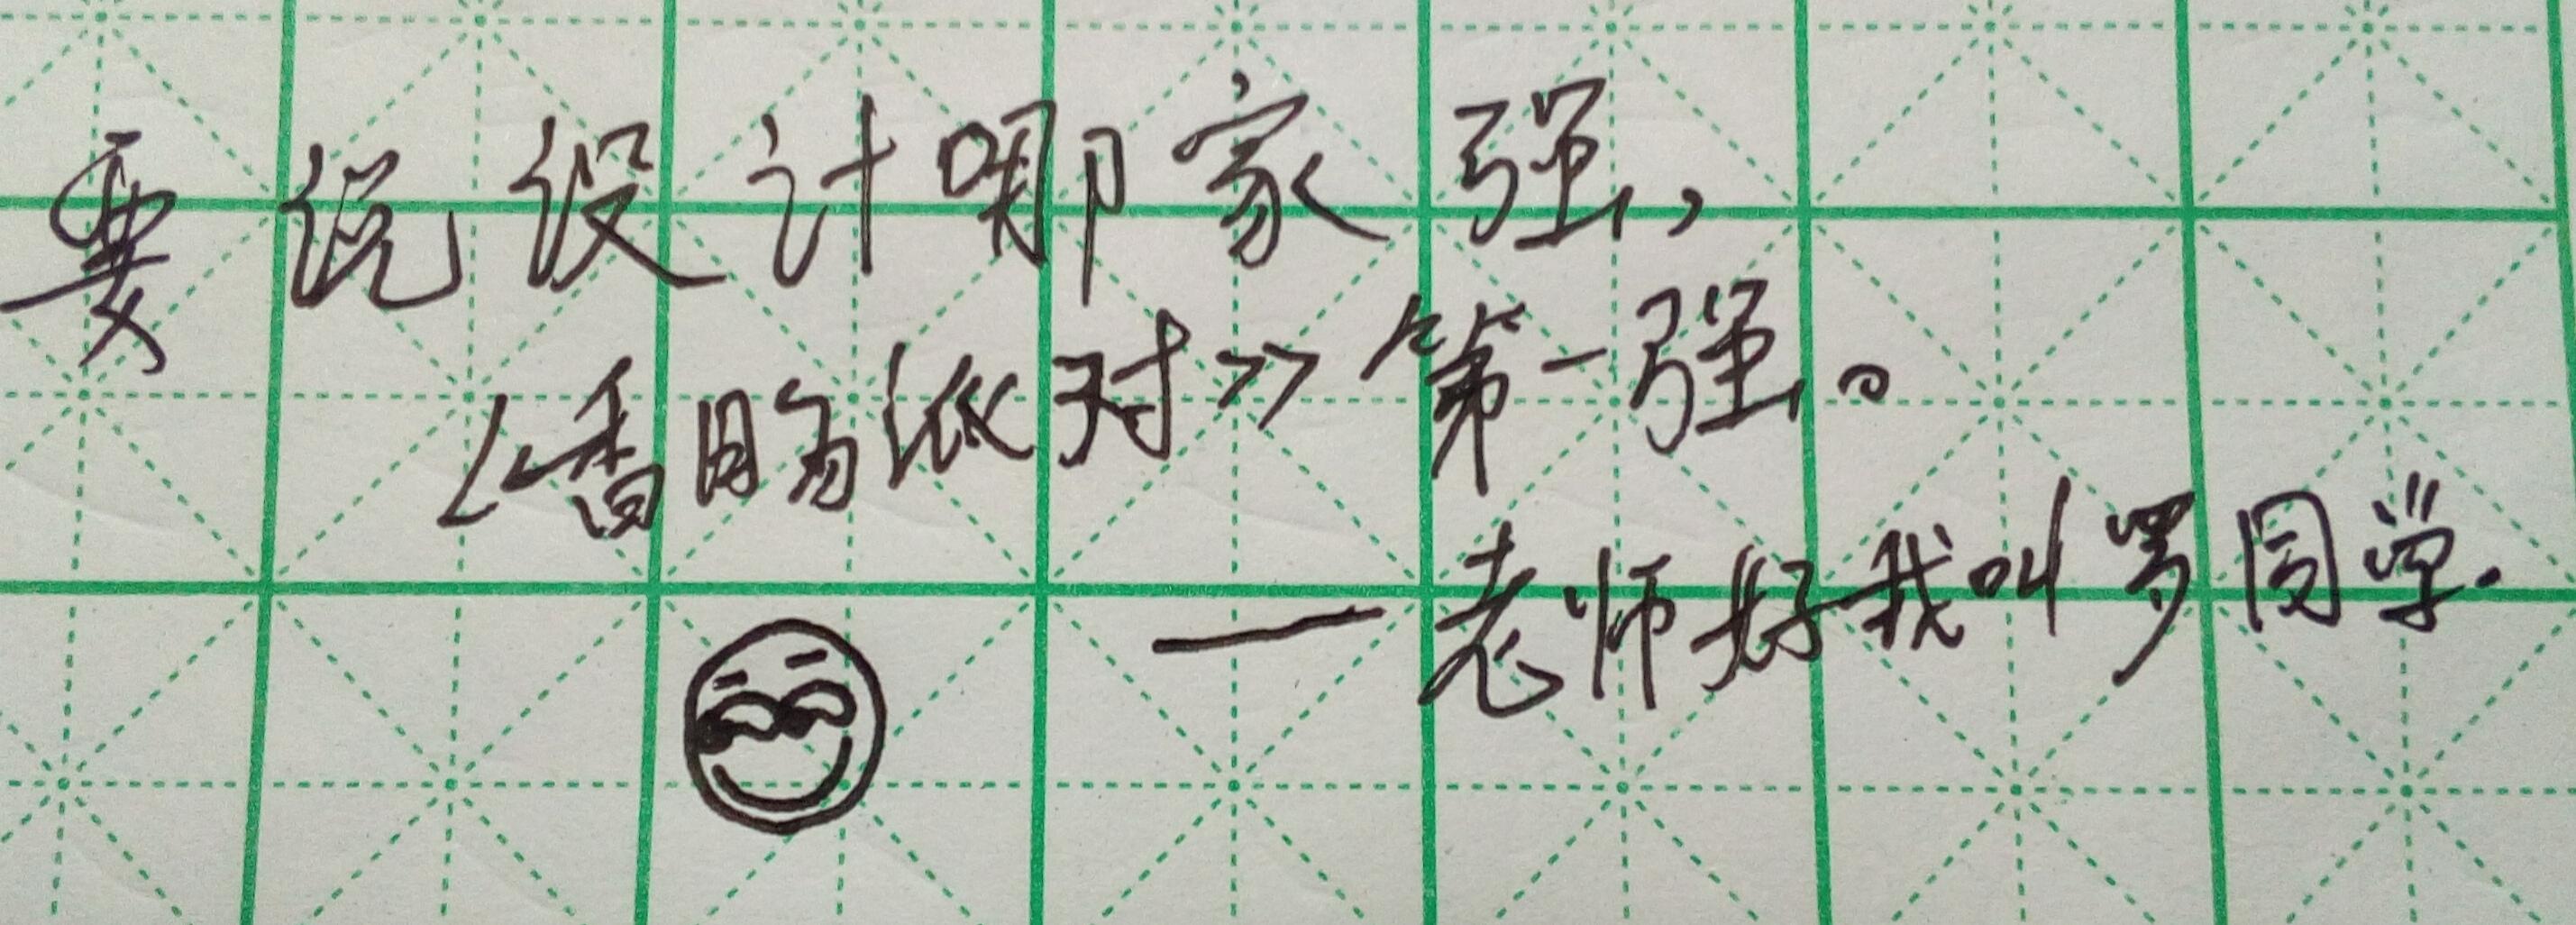 要说设计哪家强，
《香肠派对》第一强。
—老师好我叫罗同学.